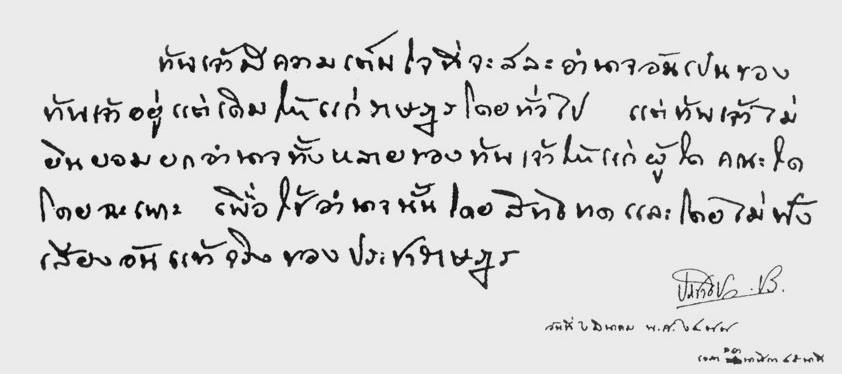 ข้าพเจ้ามีความเต็มใจที่จะสละอำนาจอันเป็นของ
ข้าพเจ้าอยู่แต่เดิมให้แก่ราษฎรโดยทั่วไป แต่ข้าพเจ้าไม่
ยินยอมยกอำนาจทั้งหลายของข้าพเจ้าให้แก่ผู้ใด คณะใด
โดยฉะเพาะ เพื่อใช้อำนาจนั้นโดยสิทธิขาดและโดยไม่ฟัง
เสียงอันแท้จริงของประชาราษฎร
ประชาธิปก ป.ร.
วันที่ ๒ มีนาคม พ.ศ. ๒๔๗๗
เวลา นาฬิกา ๔๕ นาที